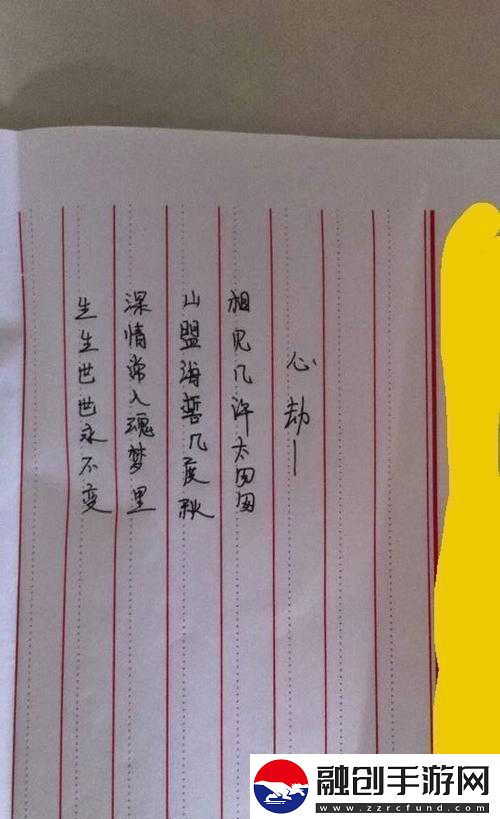 心劫一
相见几许太匆匆
山盟海誓几度秋
深情常入魂梦里
生生世世永不变
融创手游网
www.zzrcfund.com